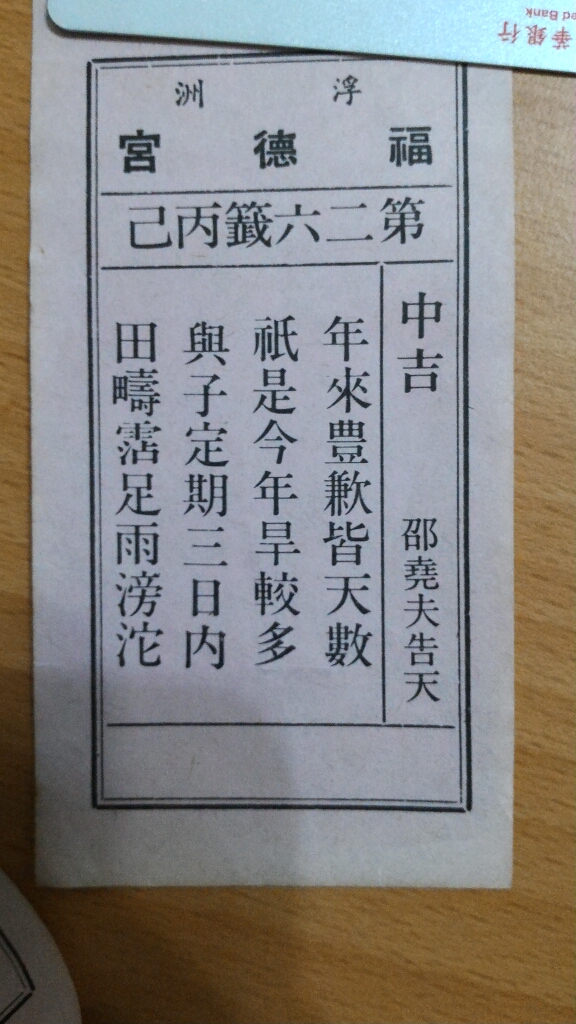 華銀行
ed Bank
浮洲
福德宮
第二六籤丙己
中吉 邵堯夫告天
年來豊歉皆天數
祇是今年旱較多
與子定期三日內
田疇霑足雨滂沱